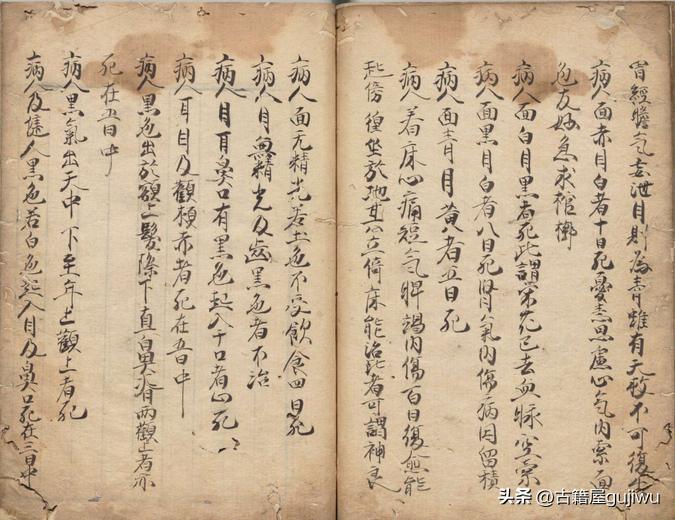 胃經膽气妄泄目則為青雖有天救不可復生
病人面赤目白者十日死憂恚思慮心气內索面
色反好急求棺槨
病人面白目黑者死此謂榮花已去血脉空索
病人面黑目白者八日死腎氣內傷病因留積
病人面青目黃者五日死
病人着床心痛短气脾竭內傷百日復愈能
起傍徨坐於地其立倚床能治此者可謂神良
病人面无精光若土色不受飲食四日死
病人目無精光及齒黑色者不治
病人目耳鼻口有黑色起入于口者必死
病人耳目及觀頰赤者死在五日中
病人黑色出於額上髮際下直鼻脊兩觀上者亦
死在五日中
病人黑氣出天中下至年上觀上者死
病人及健人黑色若白色起入目及鼻口死在三日中
头条 @古籍屋gujiwu